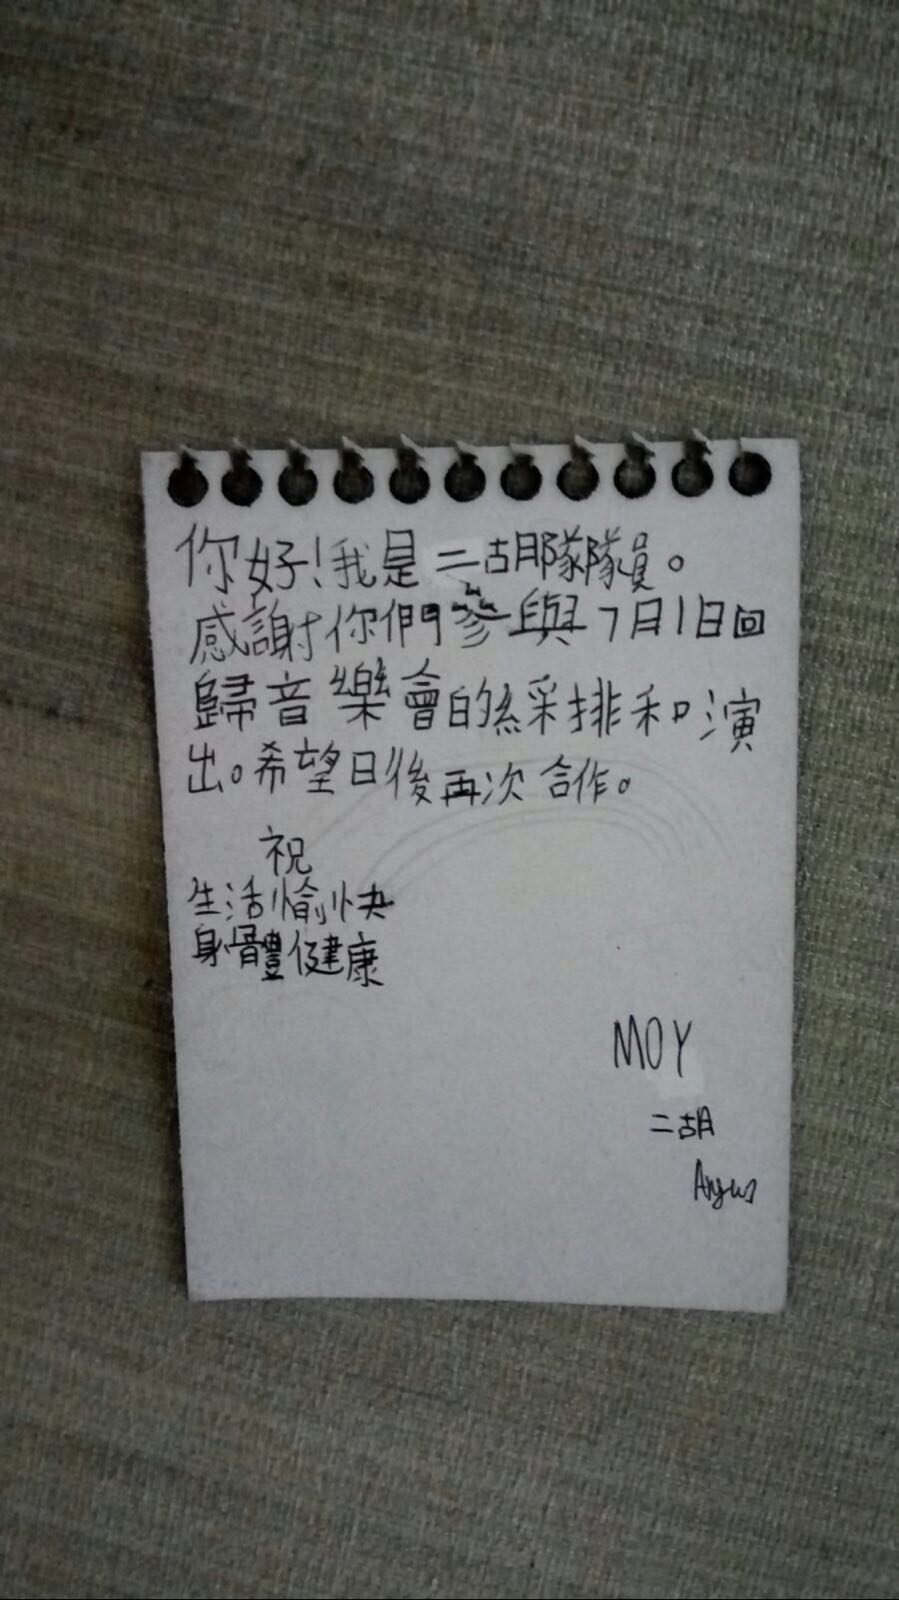 你好!我是二胡隊隊員。
感謝你們參與7月1日回
歸音樂會的綵排和演
出。希望日後再次合作。
祝
生活愉快
身體健康
MOY
二胡
Angus